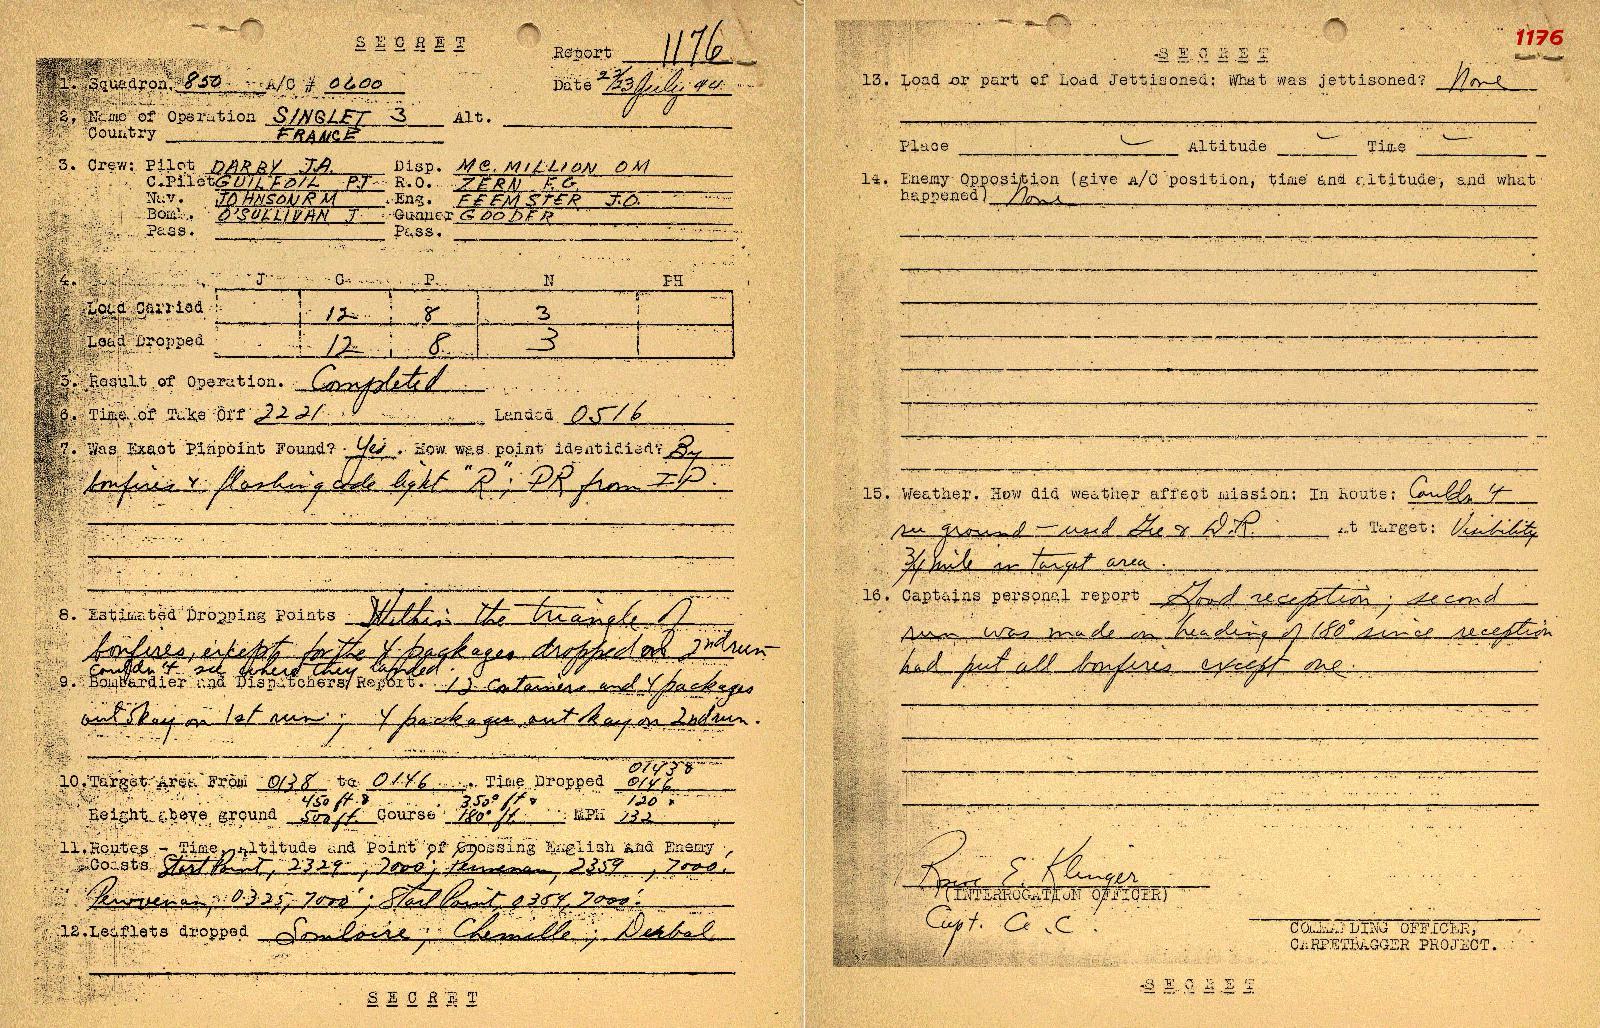 SECRET
Report 1176
1. Squadron 850 A/C # 0600 Date 22/23 July 44
2. Name of Operation SINGLET 3 Alt.
Country FRANCE
3. Crew: Pilot DARBY J.A. Disp. MC.MILLION OM
C.Pilot GUILFOIL PJ R.O. ZERN F.G.
Nav. JOHNSON RM Eng. FEEMSTER J.O.
Bom. O'SULLIVAN J Gunner GOODER
Pass. Pass.
4. J C P N PH
Load Carried 12 8 3
Load Dropped 12 8 3
5. Result of Operation. Completed
6. Time of Take Off 2221 Landed 0516
7. Was Exact Pinpoint Found? Yes. How was point identidied? By
bonfires & flashing code light "R"; DR from IP.
8. Estimated Dropping Points Within the triangle of
bonfires, except for the 4 packages dropped on 2nd run
couldn't see where they landed.
9. Bombardier and Dispatchers Report. 12 containers and 4 packages
out okay on 1st run; 4 packages out okay on 2nd run.
10. Target Area From 0138 to 0146. Time Dropped 0146
450 ft & 350° 120
Height above ground 500 ft. Course 180° MPH 132
11. Routes - Time, Altitude and Point of Crossing English and Enemy
Coasts Start Point, 2329, 7000'; 2359, 7000'.
0325, 7000'; Start Point, 0354, 7000'.
12. Leaflets dropped Soulaire; Chemille; Derbal
SECRET
SECRET
1176
13. Load or part of Load Jettisoned: What was jettisoned? None
Place Altitude Time
14. Enemy Opposition (give A/C position, time and altitude, and what
happened) None
15. Weather. How did weather affect mission: In Route: Couldn't
see ground - used Gee & D.R. At Target: Visibility
3/4 mile in target area.
16. Captains personal report Good reception; second
run was made on heading of 180° since reception
had put all bonfires except one.
E. Klinger
(INTERROGATION OFFICER)
Capt. A.C.
COMMANDING OFFICER,
CARPETBAGGER PROJECT.
SECRET